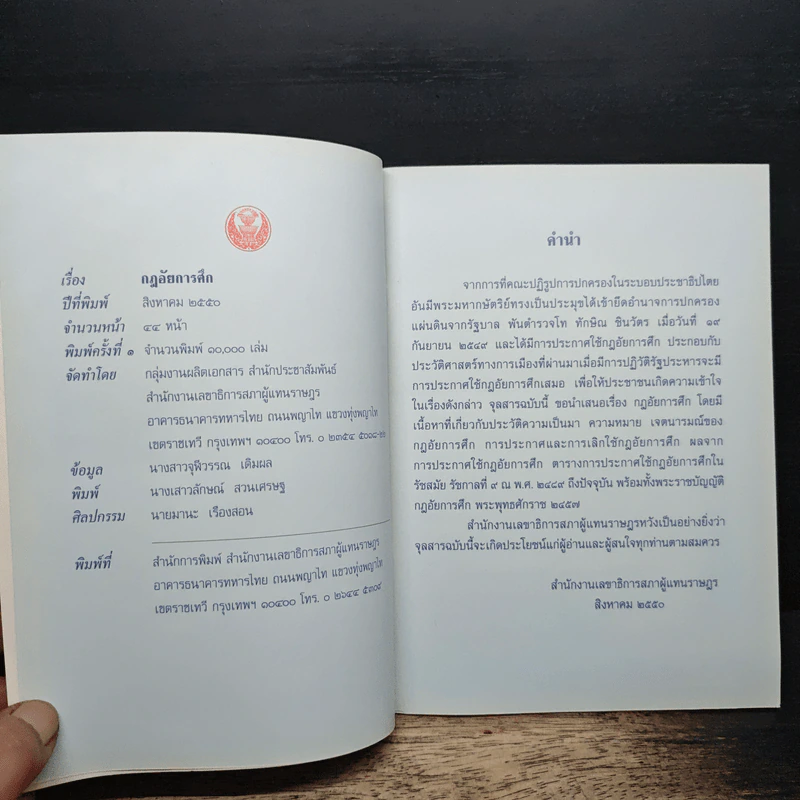 เรื่อง กฎอัยการศึก
ปีที่พิมพ์ สิงหาคม ๒๕๕๐
จำนวนหน้า ๔๔ หน้า
พิมพ์ครั้งที่ ๑ จำนวนพิมพ์ ๑๐,๐๐๐ เล่ม
จัดทำโดย กลุ่มงานผลิตเอกสาร สำนักประชาสัมพันธ์
สำนักงานเลขาธิการสภาผู้แทนราษฎร
อาคารธนาคารทหารไทย ถนนพญาไท แขวงทุ่งพญาไท
เขตราชเทวี กรุงเทพฯ ๑๐๔๐๐ โทร. ๐ ๒๓๕๔
ข้อมูล นางสาวจุฬีวรรณ เติมผล
พิมพ์ นางเสาวลักษณ์ สวนเศรษฐ
ศิลปกรรม นายมานะ เรืองสอน
พิมพ์ที่ สำนักการพิมพ์ สำนักงานเลขาธิการสภาผู้แทนราษฎร
อาคารธนาคารทหารไทย ถนนพญาไท แขวงทุ่งพญาไท
เขตราชเทวี กรุงเทพฯ ๑๐๔๐๐ โทร. ๐ ๒๖๔๔ ๕๓๐๙
คำนำ
จากการที่คณะปฏิรูปการปกครองในระบอบประชาธิปไตย
อันมีพระมหากษัตริย์ทรงเป็นประมุขได้เข้ายึดอำนาจการปกครอง
แผ่นดินจากรัฐบาล พันตำรวจโท ทักษิณ ชินวัตร เมื่อวันที่ ๑๙
กันยายน ๒๕๔๙ และได้มีการประกาศใช้กฎอัยการศึก ประกอบกับ
ประวัติศาสตร์ทางการเมืองที่ผ่านมาเมื่อมีการปฏิวัติรัฐประหารจะมี
การประกาศใช้กฎอัยการศึกเสมอ เพื่อให้ประชาชนเกิดความเข้าใจ
ในเรื่องดังกล่าว จุลสารฉบับนี้ ขอนำเสนอเรื่อง กฎอัยการศึก โดยมี
เนื้อหาที่เกี่ยวกับประวัติความเป็นมา ความหมาย เจตนารมณ์ของ
กฎอัยการศึก การประกาศและการเลิกใช้กฎอัยการศึก ผลจาก
การประกาศใช้กฎอัยการศึก ตารางการประกาศใช้กฎอัยการศึกใน
รัชสมัย รัชกาลที่ ๙ ณ พ.ศ. ๒๔๘๙ ถึงปัจจุบัน พร้อมทั้งพระราชบัญญัติ
กฎอัยการศึก พระพุทธศักราช ๒๔๕๗
สำนักงานเลขาธิการสภาผู้แทนราษฎรหวังเป็นอย่างยิ่งว่า
จุลสารฉบับนี้จะเกิดประโยชน์แก่ผู้อ่านและผู้สนใจทุกท่านตามสมควร
สำนักงานเลขาธิการสภาผู้แทนราษฎร
สิงหาคม ๒๕๕๐